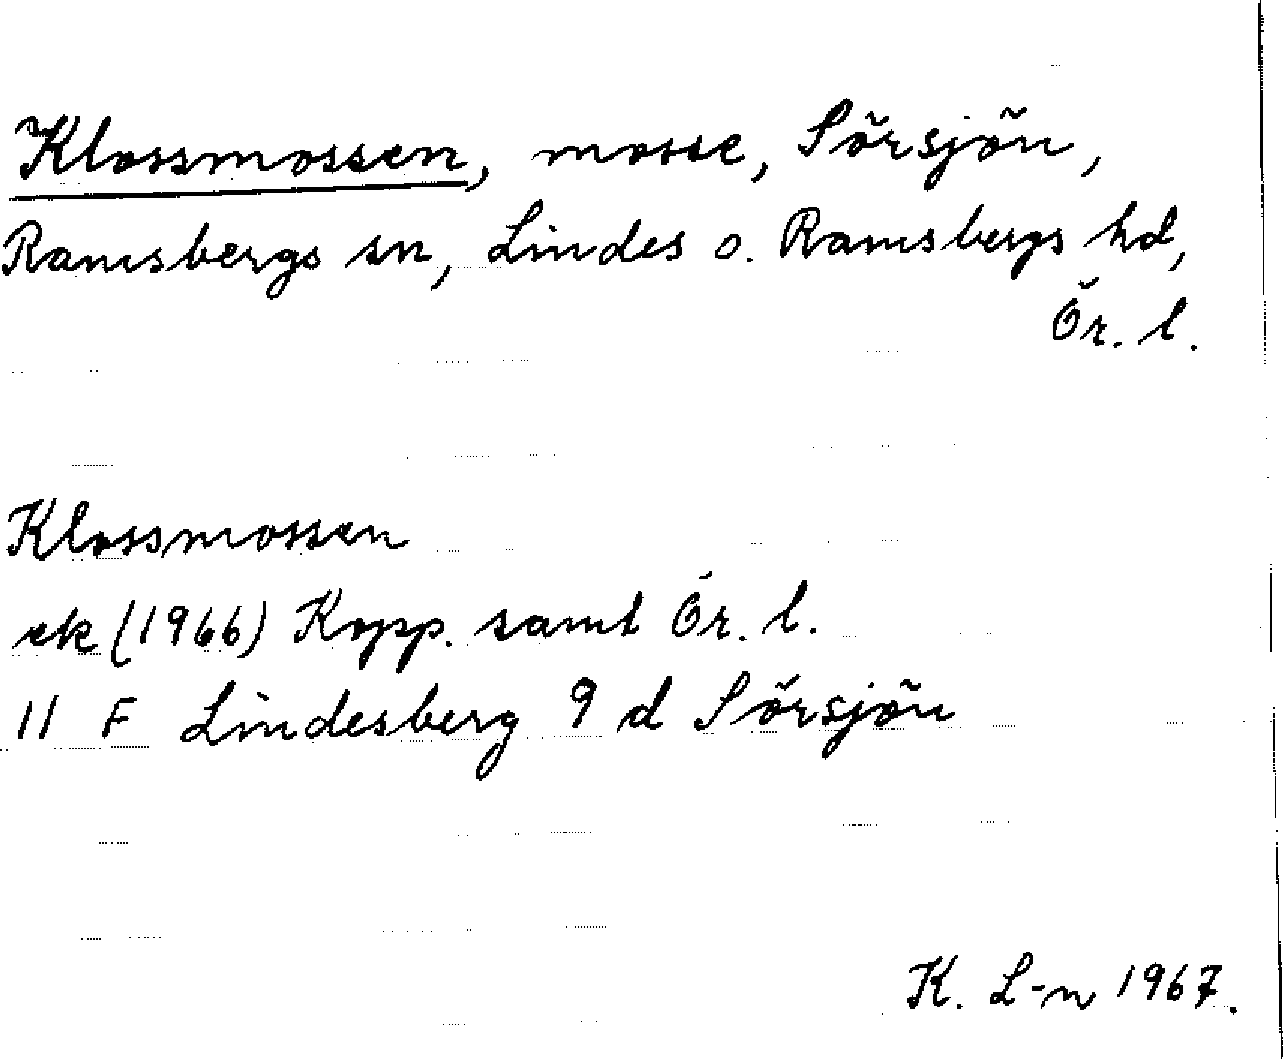 Klossmossen, mosse, Sörsjön,
Ramsbergs sn, Lindes o. Ramsbergs hd,
Ör. l.
Klossmossen
ek (1966) Kopp. samt Ör. l.
11 F Lindesberg 9 d Sörsjön
K. L-n 1967.